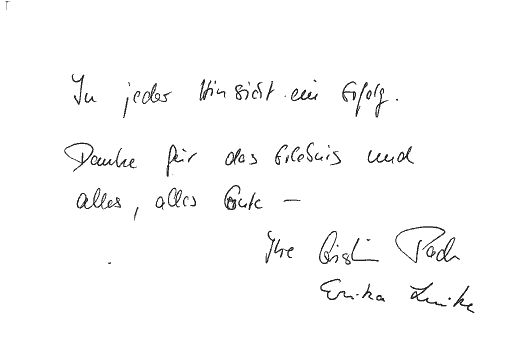 In jeder Hinsicht ein Erfolg.
Danke für das Erlebnis und
alles, alles Gute –
Ihre
Erika